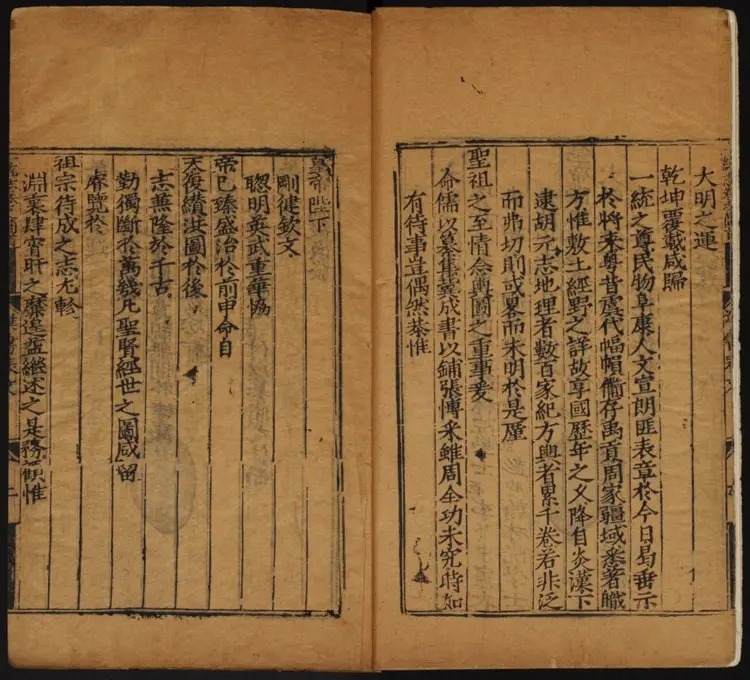 大明之運
乾坤覆載咸歸
一統之尊民物阜康人文宣朗匪表章於今日曷垂示
於將来粤昔虞代幅幀僃存禹貢周家疆域悉著職
方惟敷土經野之詳故享國歷年之乆降自炎漢下
逮胡元志地理者數百家紀方輿者累千卷若非泛
而弗切則或畧而未明於是厪
聖祖之至情念輿圖之重事爰
命儒以纂集冀成書以鋪張慱采雖周全功未究時如
有待事豈偶然恭惟
皇帝陛下
剛健欽文
聦明英武重華恊
帝已臻盛治於前申命自
天復纘洪圖於後
志無隆於千古
勤獨斷於萬幾凡聖賢經世之圖咸留
睿覽於
祖宗待成之志尤軫
淵衷肆宵旰之靡遑葢繼述之是務顴惟